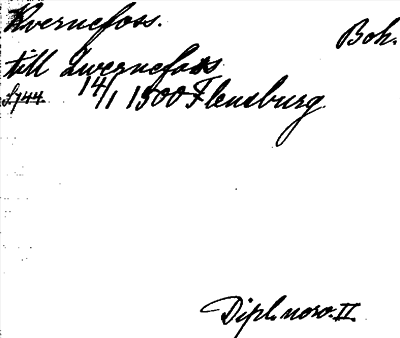 Kvernefoss.
Boh.
till Qwernefoss
s. 744 14/1 1500 Flensburg
Dipl. norv. II.